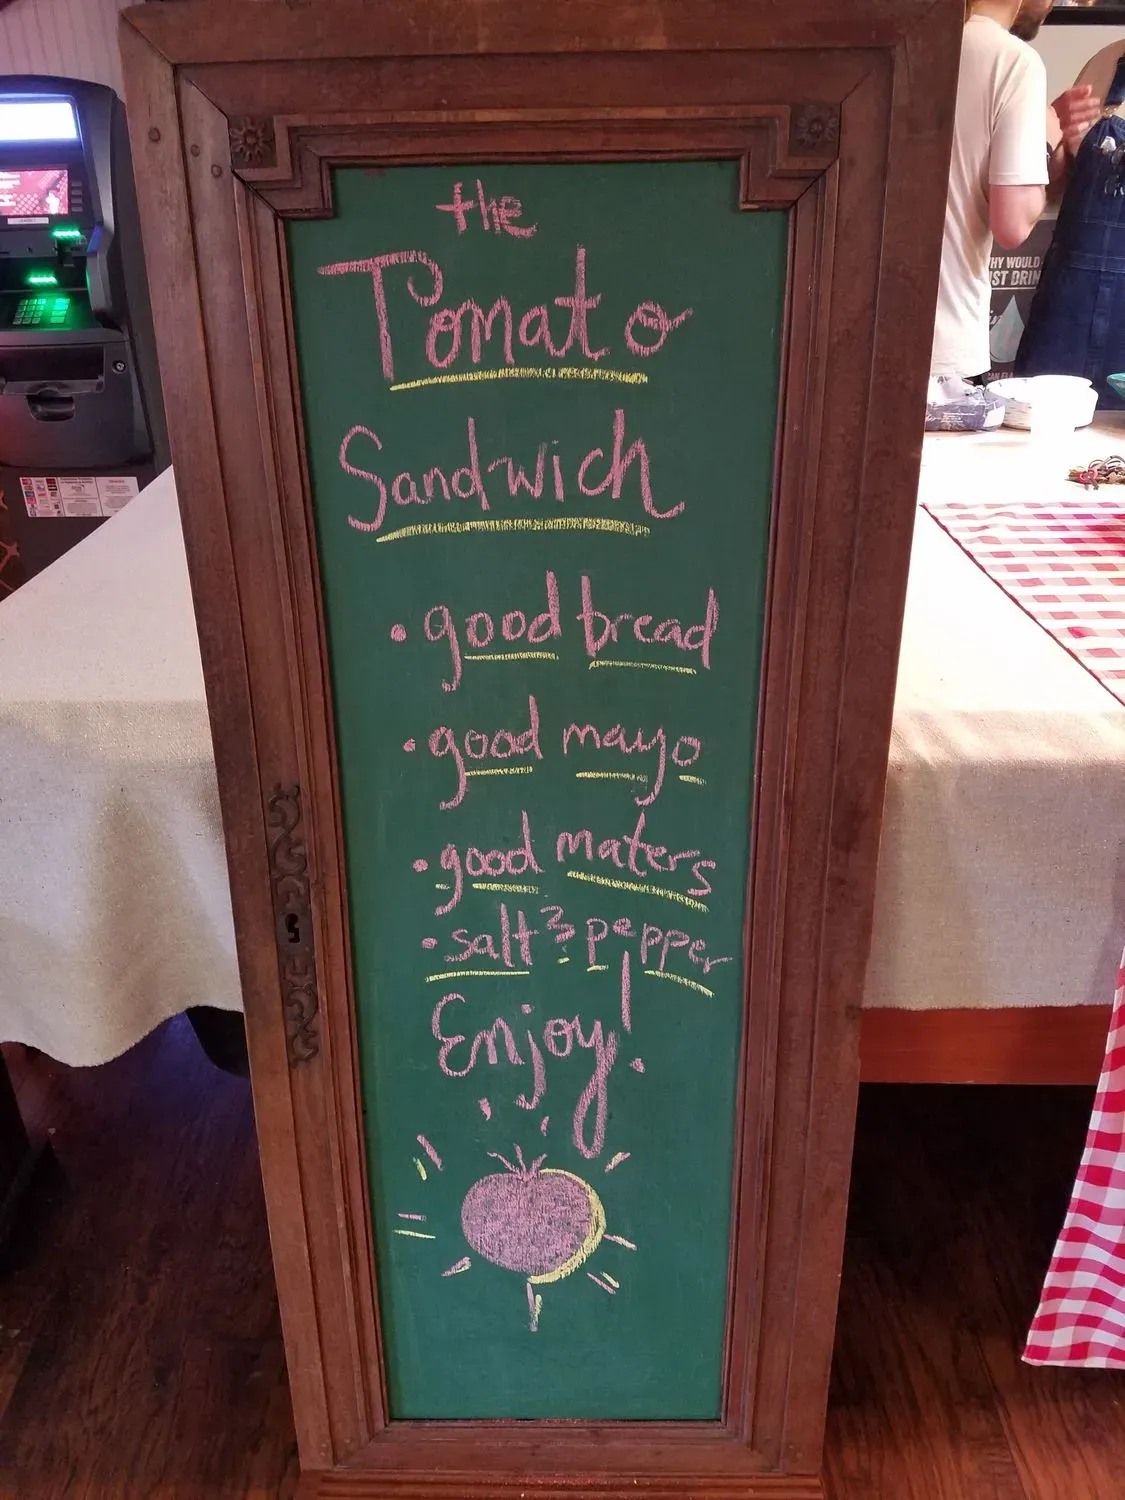 the
Tomato
Sandwich
• good bread
• good mayo
• good maters
• salt & pepper
Enjoy!
HY WOULD
UST DRIN